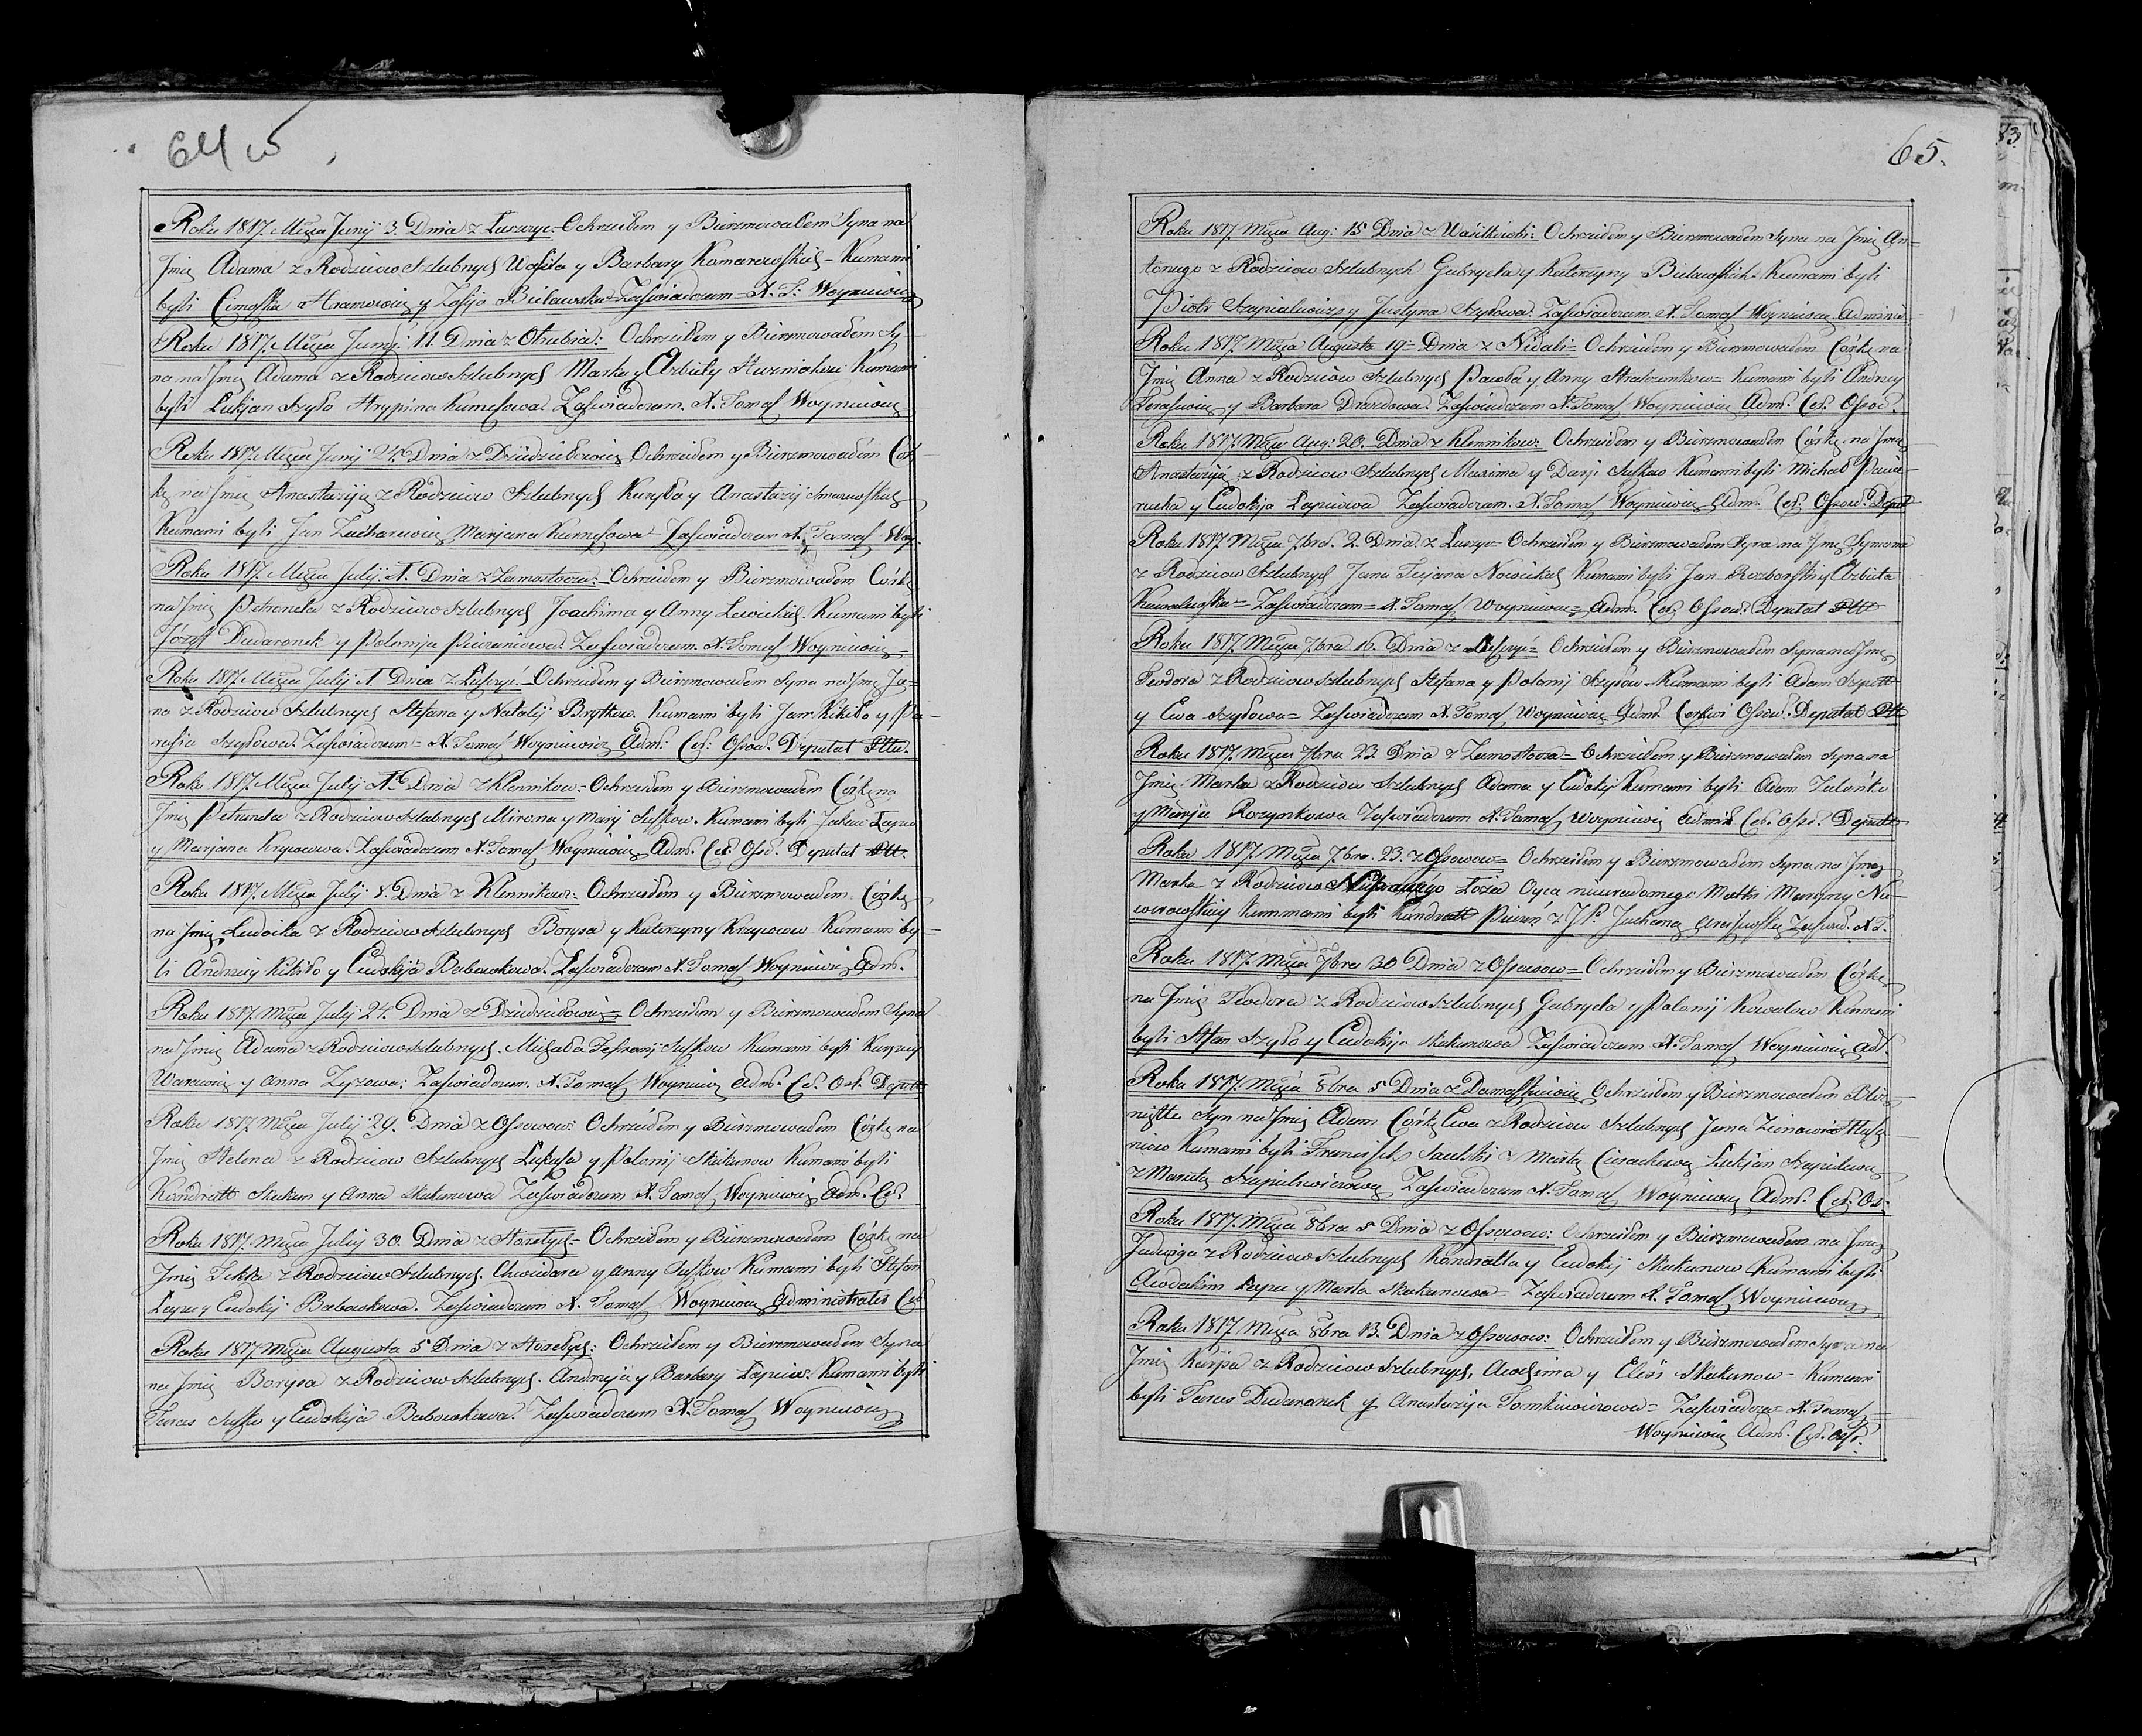 64 w
Roku 1817. Mṡca Junij 3. Dnia z Łuszyc= Ochrzciłem y Bierzmowałem Syna na
Jmię Adama z Rodziców Szlubnych Wasila y Barbary Komarowskich - Kumami
byli Cimoszka Hramowicz y Zofija Bielawska= Zaświadczam= X. T: Woyniewicz
Roku 1817. Mṡca Junij. 11. Dnia z Otrubia: Ochrzciłem y Bierzmowałem Sy-
na na Jmię Adama z Rodziców Szlubnych Marka y Elzbiety Kuzmiakow Kumami
byli Łukjan Szyło Hrypina Kumesowa. Zaświadczam. X. Tomasz Woyniewicz
Roku 1817. Mṡca Junij 24. Dnia z Dziedzielewicz Ochrzciłem y Bierzmowałem Cór-
kę na Jmię Anastaziją z Rodziców Szlubnych Kuryła y Anastazij
Kumami byli Jan Zacharewicz Marjana Kurnesowa- Zaświadczam X. Tomasz Woy.
Roku 1817. Mṡca Julij. 1. Dnia z Zamostocza: Ochrzciłem y Bierzmowałem Córkę
na Jmię Petronela z Rodziców Szlubnych Joachima y Anny Lewickich. Kumami byli
Józef Dudaronek y Polonija Zaświadczam. X. Tomasz Woyniewicz
Roku 1817. Mṡca Julij 1. Dnia z Łuszyc= Ochrzciłem y Bierzmowałem Syna na Jmię Ja=
na z Rodziców Szlubnych Stefana y Natalij Brytkow. Kumami byli Jan Kikiło y Pa-
rasia Szyłowa. Zaświadczam= X. Tomasz Woyniewicz Adm: Cer: Ossow. Deputat Pttu.
Roku 1817. Mṡca Julij 1. Dnia z Klennikow= Ochrzciłem y Bierzmowałem Córkę na
Jmię Petrunela z Rodziców Szlubnych Mirona y Marij Suszkow. Kumami byli Jakow Łapu
y Marjana Krzycowa. Zaświadczam X. Tomasz Woyniewicz Adm. Cer. Oss. Deputat Ptt.
Roku 1817. Mṡca Julij 8. Dnia z Klennikow: Ochrzciłem y Bierzmowałem Córkę
na Jmię Ludwika z Rodziców Szlubnych Borysa y Katerzyny Krzycowow Kumami by-
li Andrzey Kikiło y Eudokija Baboukowa. Zaświadczam X. Tomasz Woyniewicz Adm.
Roku 1817. Mṡca Julij 24. Dnia z Dziedziłowicz= Ochrzciłem y Bierzmowałem Syna
na Jmię Adama z Rodziców Szlubnych. Michała Tefranij Suszkow Kumami byli
y Anna Zyzowa: Zaświadczam. X. Tomasz Woyniewicz Adm. Cer. Os. Deputt
Roku 1817. Mṡca Julij 29. Dnia z Ossowow: Ochrzciłem y Bierzmowałem Córkę na
Jmię Helena z Rodziców Szlubnych Łukasza y Polonij Skakunow Kumami byli
Kondratt Skakun y Anna Skakunowa Zaświadczam X. Tomasz Woyniewicz Adm. Cer.
Roku 1817. Mṡca Julij 30. Dnia z Horelych= Ochrzciłem y Bierzmowałem Córkę na
Jmię Tekla z Rodziców Szlubnych. Chwiedora y Anny Suszkow Kumami byli Stefan
Łapu y Eudokij Babouskowa. Zaświadczam X. Tomasz Woyniewicz Administrator Cer.
Roku 1817 Mṡca Augusta 5 Dnia z Horelych: Ochrzciłem y Bierzmowałem Syna
na Jmię Borysa z Rodziców Szlubnych. Andrzeja y Barbary Łapiow: Kumami byli
Taras Suszko y Eudokija Babouskowa. Zaświadczam X. Tomasz Woyniewicz
65.
Roku 1817. Mṡca Aug: 15 Dnia z Wasilkowki: Ochrzciłem y Bierzmowałem Syna na Jmię An=
toniego z Rodziców Szlubnych Gabryela y Katerzyny Bielawskich. Kumami byli
Piotr Szapialewicz y Justyna Szyłowa. Zaświadczam. X. Tomasz Woyniewicz Admini-
Roku 1817 Mṡca Augusta 19= Dnia z Niedali= Ochrzciłem y Bierzmowałem Córkę na
Jmię Anna z Rodziców Szlubnych Pawła y Anny Kumami byli Andrzey
y Barbara Drazdowa. Zaświadczam X. Tomasz Woyniewicz Adm. Cer. Ossow.
Roku 1817. Mṡca Aug: 20. Dnia z Klennikow: Ochrzciłem y Bierzmowałem Córkę na Jmię
Anastaziją z Rodziców Szlubnych Maxima y Darji Suszkow Kumami byli Michał
y Eudokija Łapiowa Zaświadczam. X. Tomasz Woyniewicz Adm. Cer. Ossow. Deput
Roku 1817 Mṡca 7bra. 2. Dnia z Łuszyc= Ochrzciłem y Bierzmowałem Syna na Jmię Symona
z Rodziców Szlubnych Jana Tacjana Nowickich Kumami byli Jan Rozborski y Elzbieta
Kowalewska= Zaświadczam= X. Tomasz Woyniewicz= Adm. Cer. Ossow. Deputat Ptt
Roku 1817. Mṡca 7bra 16. Dnia z Łuszyc= Ochrzciłem y Bierzmowałem Syna na Jmię
Teodora z Rodziców Szlubnych Stefana y Polonij Szyłow- Kumami byli Adam Szpett
y Ewa Szyłowa= Zaświadczam X. Tomasz Woyniewicz Adm. Cerkwi Ossow. Deputat Ptt
Roku 1817. Mṡca 7bra 23 Dnia z Zamostocza= Ochrzciłem y Bierzmowałem Syna na
Jmię Marka z Rodziców Szlubnych Adama y Eudokij Kumami byli Adam
y Marija Zaświadczam X. Tomasz Woyniewicz Admin Cer. Oss. Deputt
Roku 1817. Mṡca 7bra. 23. z Ossowow= Ochrzciłem y Bierzmowałem Syna na Jmię
Marka z Rodziców Nieprawego Łoża Oyca niewiadomego Matki Maryny Na-
werowskiey Kummami byli Kondratt z JP. Juchaną Zaświad. X T.
Roku 1817. Mṡca 7bra 30 Dnia z Ossowow= Ochrzciłem y Bierzmowałem Córkę
na Jmię Teodora z Rodziców Szlubnych Gabryela y Polonij Kowalow Kumami
byli Stefan Szyło y Eudokija Skakunowa Zaświadczam X. Tomasz Woyniewicz Ad.
Roku 1817. Mṡca 8bra 5 Dnia z Damaszkowicz Ochrzciłem y Bierzmowałem Bliź-
nięta Syn na Jmię Adam Córkę Ewa z Rodziców Szlubnych Jana Zienowi
Kumami byli Franciszek Saulski z Martą Ciesackową Łukjan Szapielewicz
z Martą Szapielewiczową Zaświadczam X. Tomasz Woyniewicz Adm. Cer. Os.
Roku 1817. Mṡca 8bra 5 Dnia z Ossowow: Ochrzciłem y Bierzmowałem na Jmię
Jadwiga z Rodziców Szlubnych Kondratta y Eudokij Skakunow Kumami byli
Awdakim Łapu y Marta Skakunowa= Zaświadczam X. Tomasz Woyniewicz
Roku 1817 Mṡca 8bra 13. Dnia z Ossowow: Ochrzciłem y Bierzmowałem Syna na
Jmię Karpa z Rodziców Szlubnych, Awchima y Elesi Skakunow- Kumami
byli Taras Dudaronek y Anastazija Tomkiewiczowa= Zaświadcza= X. Tomasz
Woyniewicz Adm. Cer. Oss.